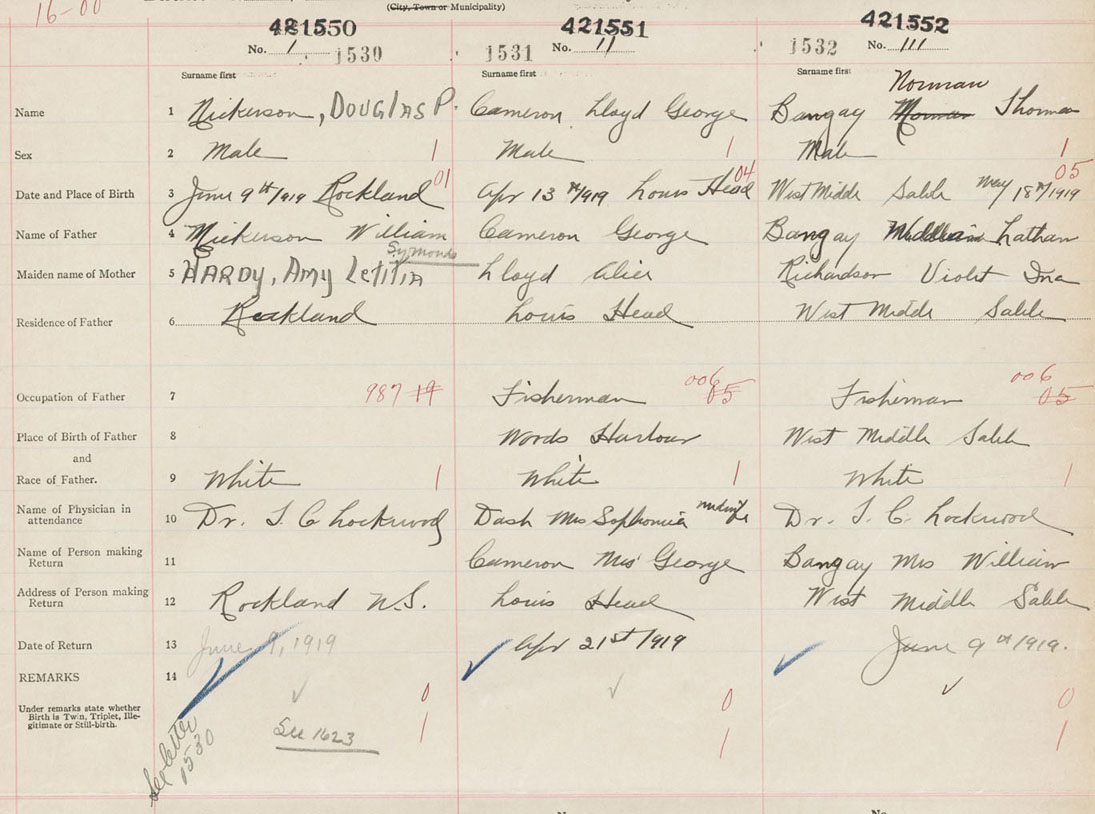 16-00
(City, Town or Municipality)
421550 421551 421552
No. 1 1530 1531 No. 11 1532 No. 111
Surname first Surname first Surname first
Norman
Name 1 Nickerson, DOUGLAS P. Cameron Lloyd George Bangay Norman Thomas
Sex 2 Male 1 Male 1 Male 1
01 04 05
Date and Place of Birth 3 June 9th/1919 Rockland Apr 13th/1919 Louis Head West Middle Sable May 18th/1919
Name of Father 4 Nickerson William Cameron George Bangay William Lathan
Symonds
Maiden name of Mother 5 HARDY, Amy LETITIA Lloyd Alice Richardson Violet Ina
Residence of Father 6 Rockland Louis Head West Middle Sable
006 006
Occupation of Father 7 987 19 Fisherman 05 Fisherman 05
Place of Birth of Father 8 Words Harbour West Middle Sable
and
Race of Father. 9 White 1 White 1 White 1
Name of Physician in
attendance 10 Dr. T. C Lockwood Dash Mrs Sophomia midwife Dr. T. C. Lockwood
Name of Person making
Return 11 Cameron Mrs George Bangay Mrs William
Address of Person making
Return 12 Rockland N.S. Louis Head West Middle Sable
Date of Return 13 June 9, 1919 Apr 21st/1919 June 9th/1919.
REMARKS 14
0 0 0
Under remarks state whether
Birth is Twin, Triplet, Ille-
gitimate or Still-birth.
1 1 1
See 1623
See letter
1530
No. No.